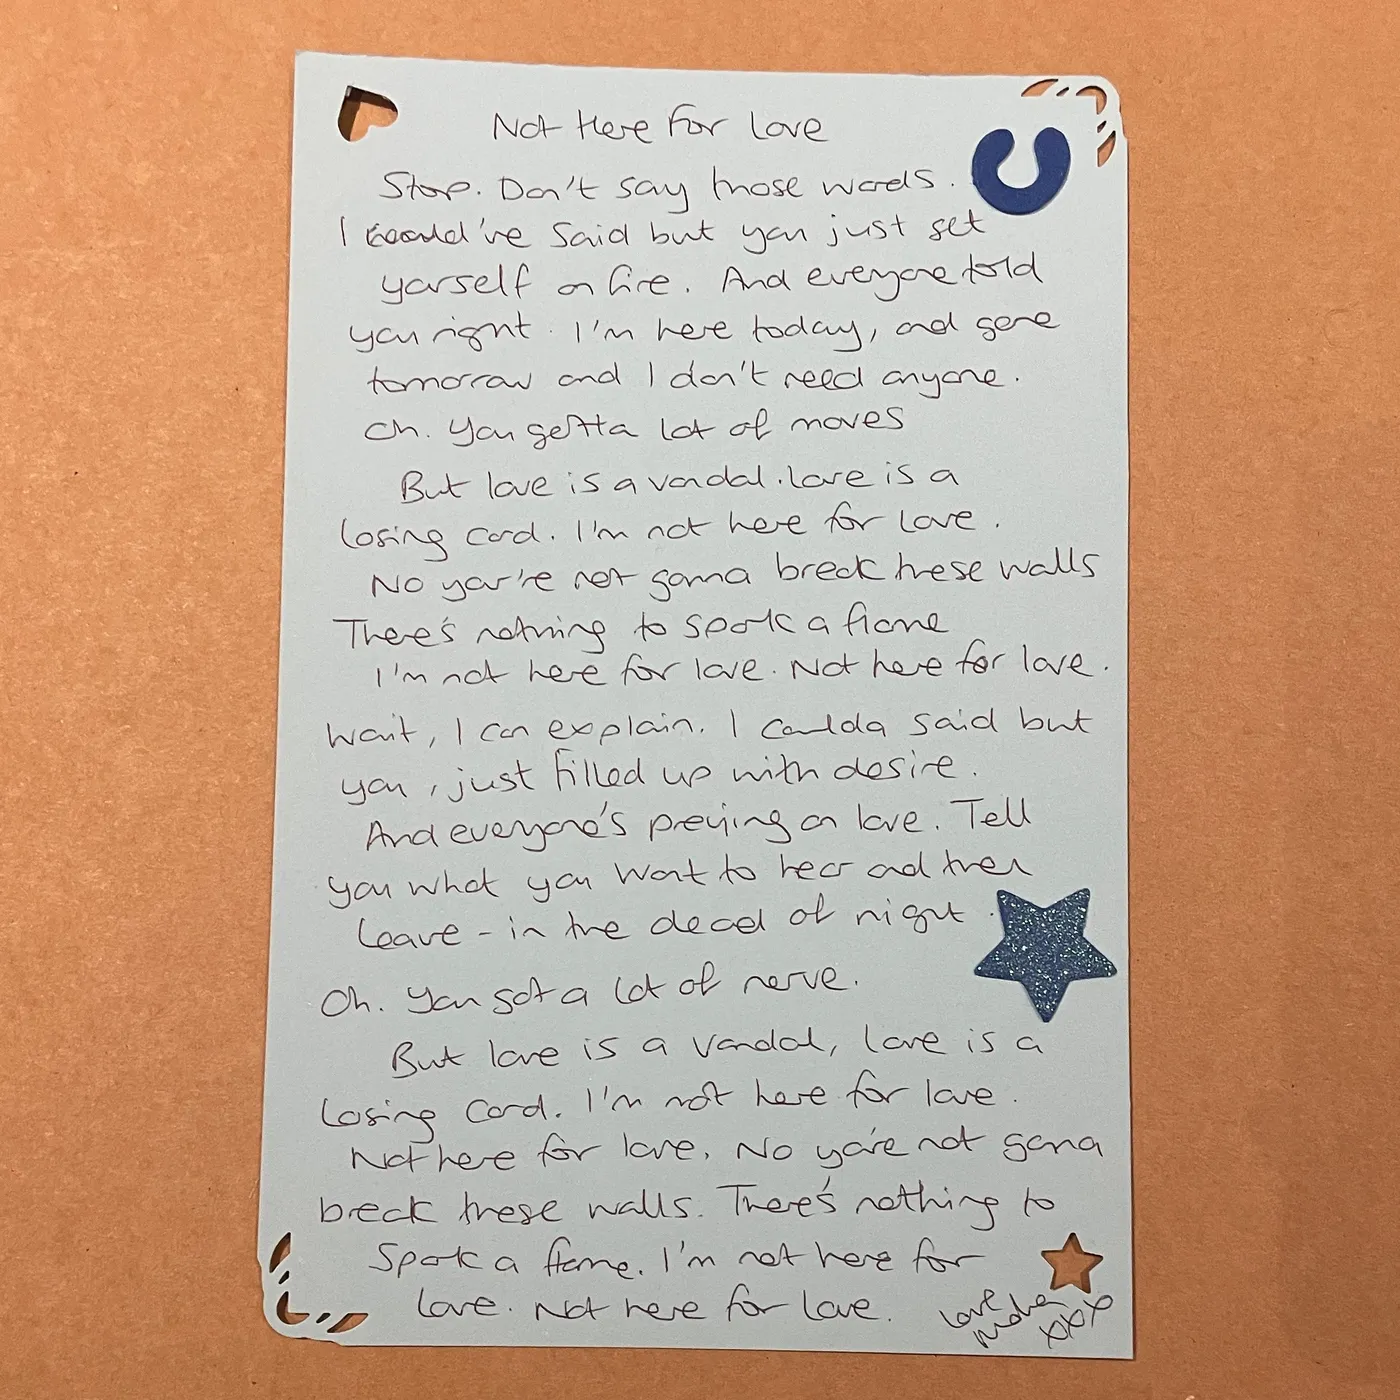 Not Here For Love
Stop. Don't say those words.
I coould've said but you just set
yourself on fire. And everyone told
you right. I'm here today, and gone
tomorrow and I don't need anyone.
Oh. You gotta lot of moves
But love is a vandal. Love is a
losing card. I'm not here for love.
No you're not gonna break these walls
There's nothing to spark a flame
I'm not here for love. Not here for love.
Wait, I can explain. I coulda said but
you, just filled up with desire.
And everyone's preying on love. Tell
you what you want to hear and then
leave - in the dead of night.
Oh. You got a lot of nerve.
But love is a vandal, love is a
losing card. I'm not here for love.
Not here for love. No you're not gonna
break these walls. There's nothing to
spark a flame. I'm not here for
love. Not here for love.
love
xxx